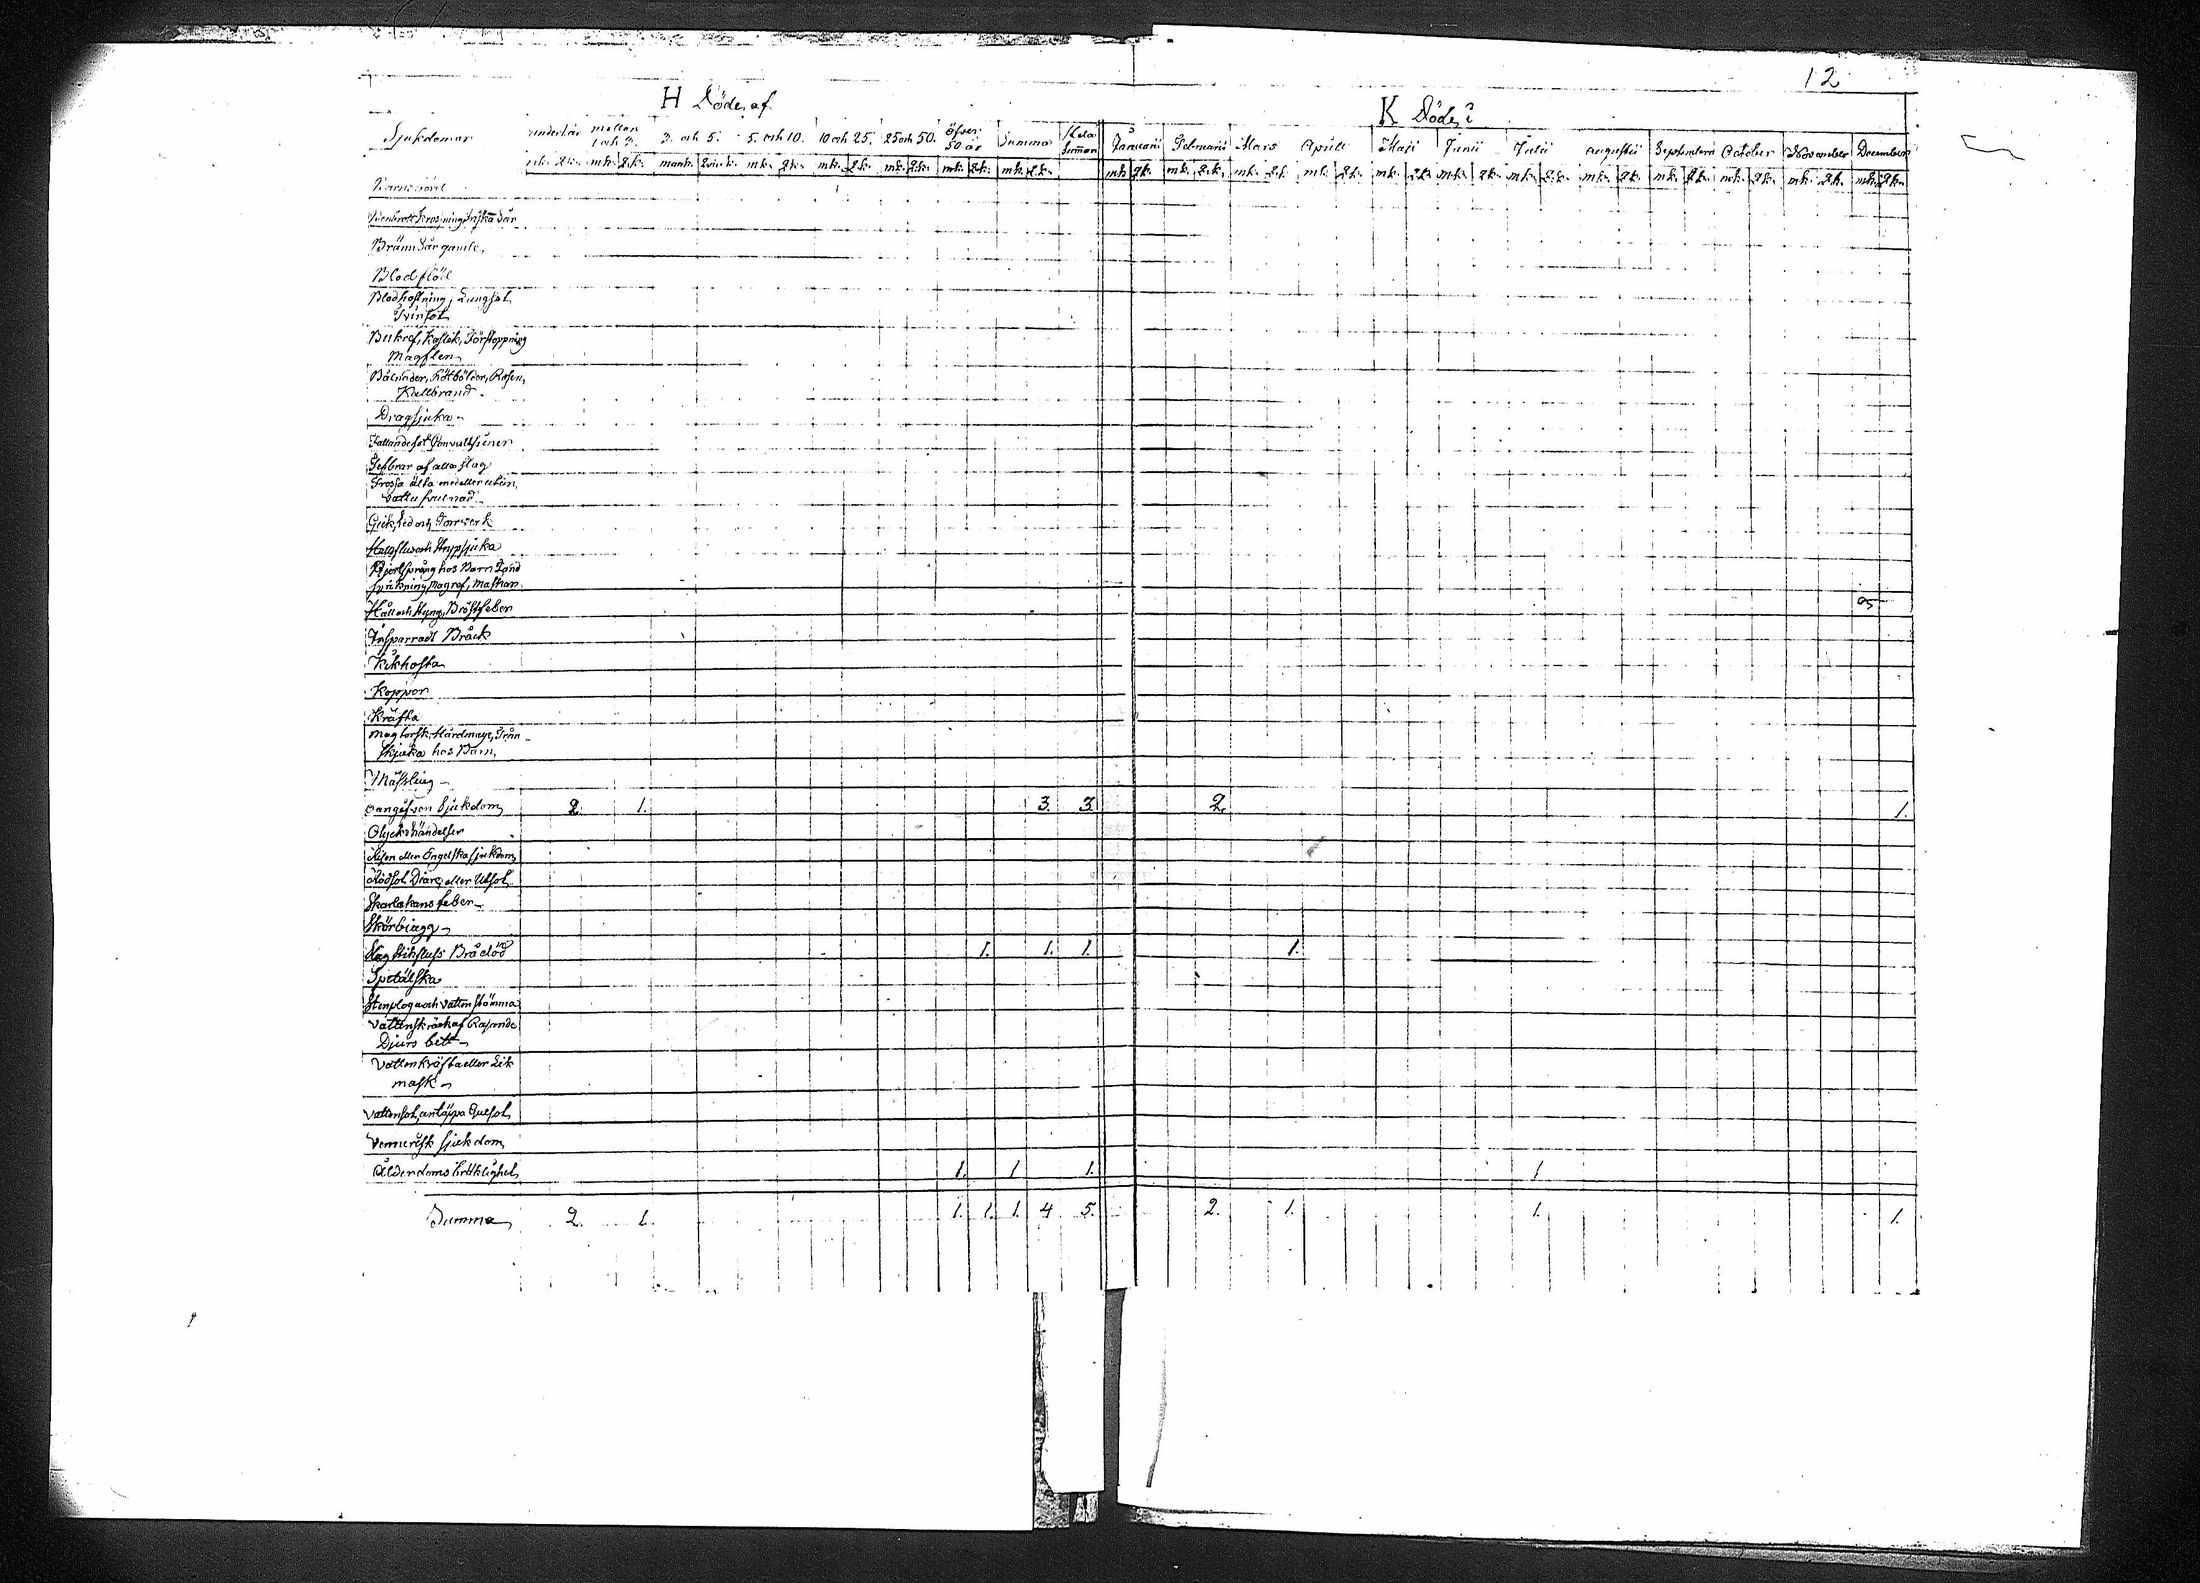 12
H Döde af
K Döde i
Sjukdomar under 1 år mellan 1 och 3. 3. och 5. 5. och 10. 10 och 25. 25 och 50. öfver 50 år Summa Hela Summan Januarii Februarii Mars Aprill Maji Junii Julii Augustii September October November December
mk. qk. mk. qk. mank. qvink. mk. qk. mk. qk. mk. qk. mk. qk. mk. qk. mk. qk. mk. qk. mk. qk. mk. qk. mk. qk. mk. qk. mk. qk. mk. qk. mk. qk. mk. qk. mk. qk. mk. qk.
Barnsbörd
Brännsår gamla
Blodflöd
Blodhostning, Lungsot
Tvinsot
Bukref, Kolik, Förstoppning
Magplen
Bölnader, Rötbölder, Rosen,
Kallbrand
Dragsjuka
Fallandesot Convultsioner
Febrar af alla slag
Frossa älta med eller utan
vattusvulnad
Gickt, Led och Torrverk
Halsfluss och Strypsjuka
Hjertsprång hos Barn Tand
sprickning, Magref, Maskar
Håll och Styng, Bröstfeber
Insparradt Bråck
Kikhosta
Koppor
Kräfta
Magtorsk, Hårdmage, Trån
sjuka hos Barn
Mässling
Oangifven Sjukdom 2. 1. 3. 3. 2. 1.
Olyckshändelser
Risen eller Engelska sjukdom
Rödsot Diare, eller Utsot
Skarlakans feber
Skörbjugg
Slag Stickfluss Bråddöd 1. 1. 1. 1.
Spetälska
Stenplåga och vattenstämma
Vattenskräck af Rasande
Djurs bett
Vattenkräfta eller Lik
mask
Vattensot, antäppa Gulsot
Vennerisk sjukdom
Ålderdoms bräcklighet 1. 1 1. 1
Summa 2. 1. 1. 1. 1. 4 5. 2. 1. 1. 1.